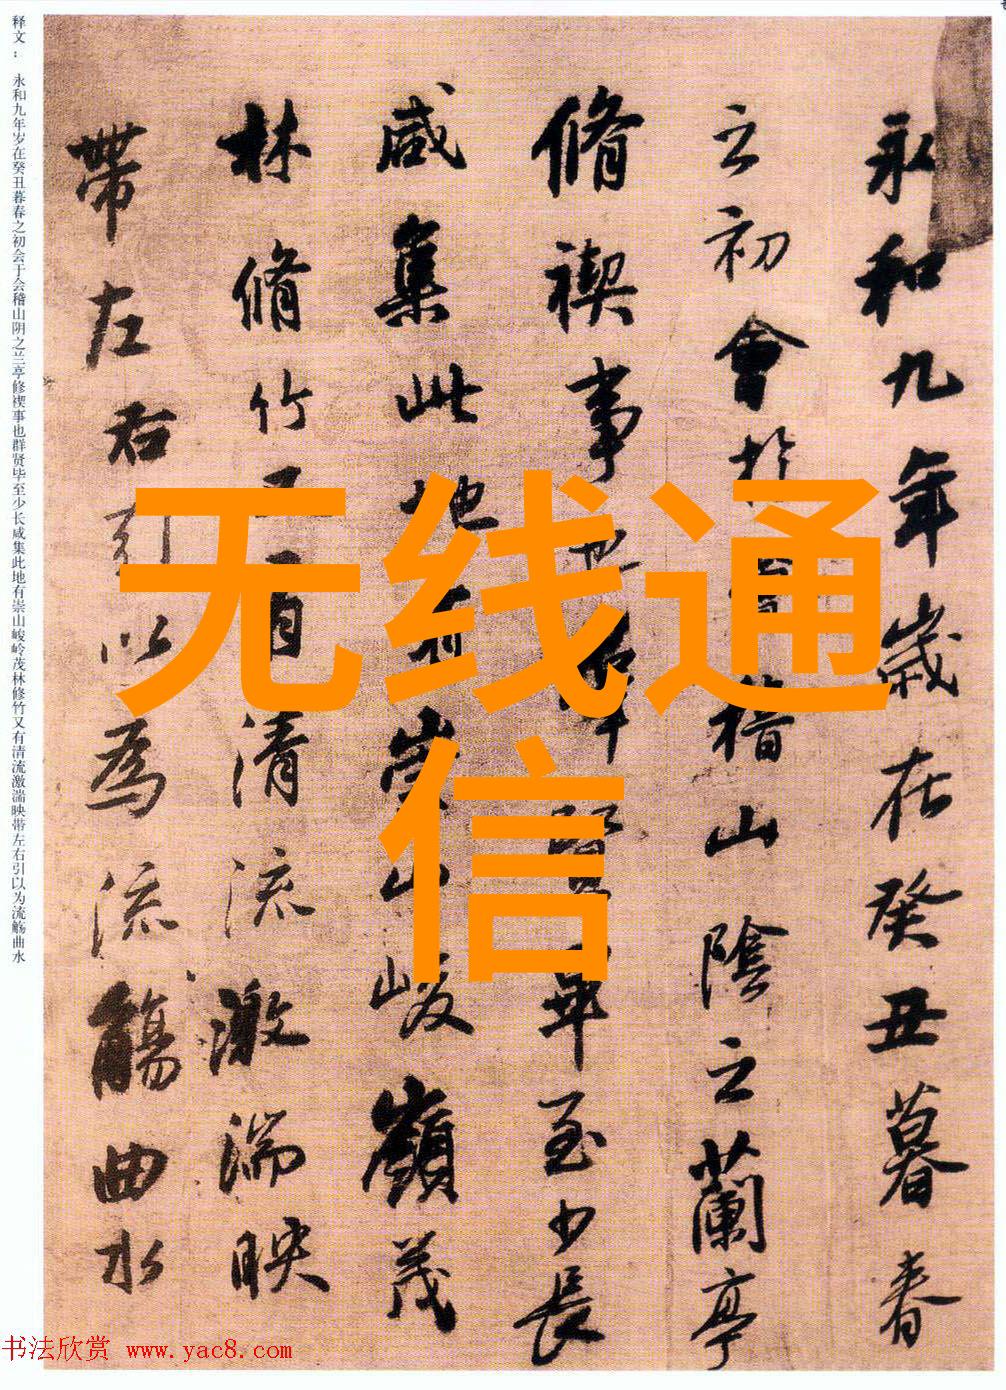 永和九年歲在癸丑暮春
之初會於會稽山陰之蘭亭
脩禊事也群賢畢至少長
咸集此地有崇山峻嶺茂
林脩竹又有清流激湍映
帶左右引以為流觴曲水
释文：永和九年岁在癸丑暮春之初会于会稽山阴之兰亭修禊事也群贤毕至少长咸集此地有崇山峻岭茂林修竹又有清流激湍映带左右引以为流觞曲水
无线通
信
书法欣赏 www.yac8.com